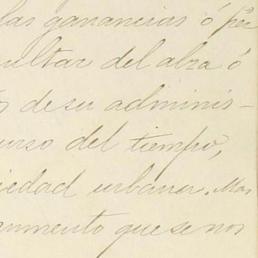 las ganancias ó pér
ultar del alza ó
de su adminis-
urso del tiempo,
iedad urbana. Mas
rumento que se nos